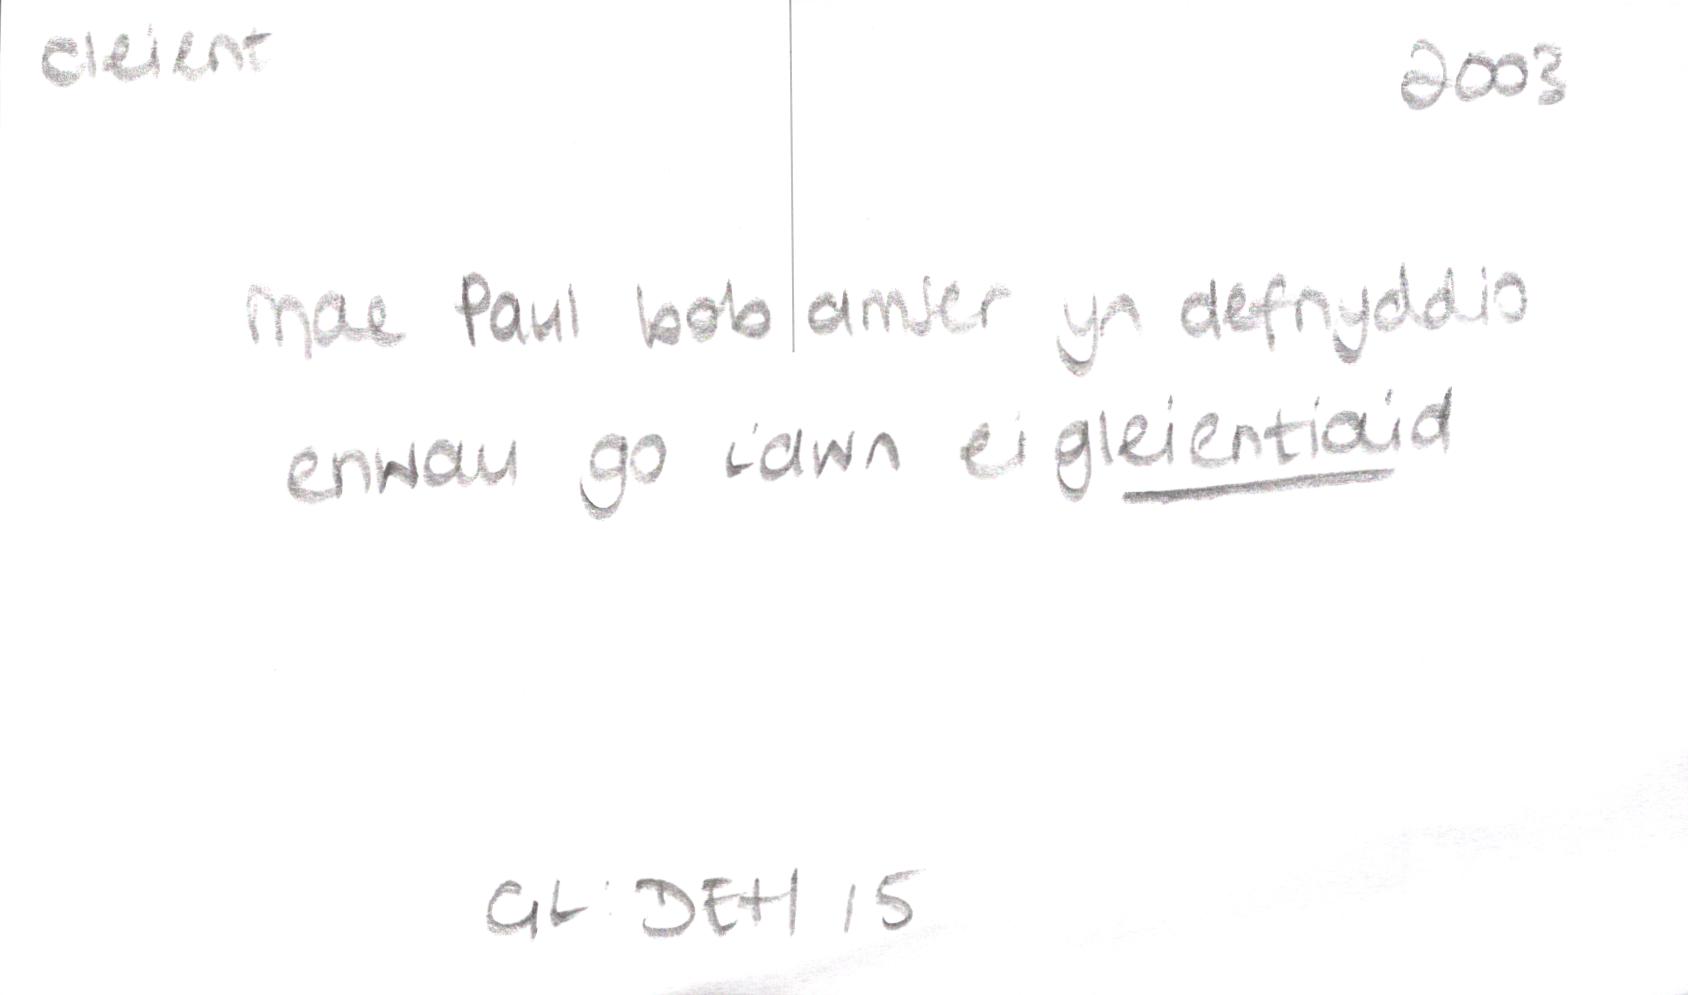 cleient 2003
Mae Paul bob amser yn defnyddio
enwau go iawn ei gleientiaid
GL: DEH 15